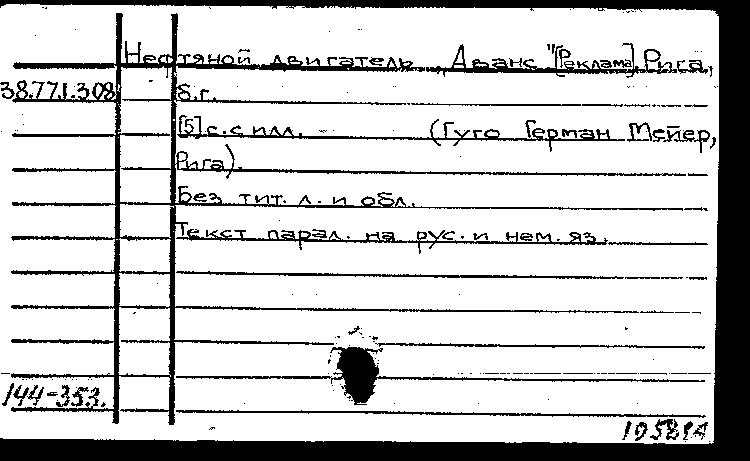 Нефтяной двигатель „Аванс" [Реклама]. Рига,
38.77.1.308 б.г.
[5] с. с илл. - (Гуго Герман Мейер,
Рига).
Без тит. л. и обл.
Текст парал. на рус. и нем. яз.
144-353.